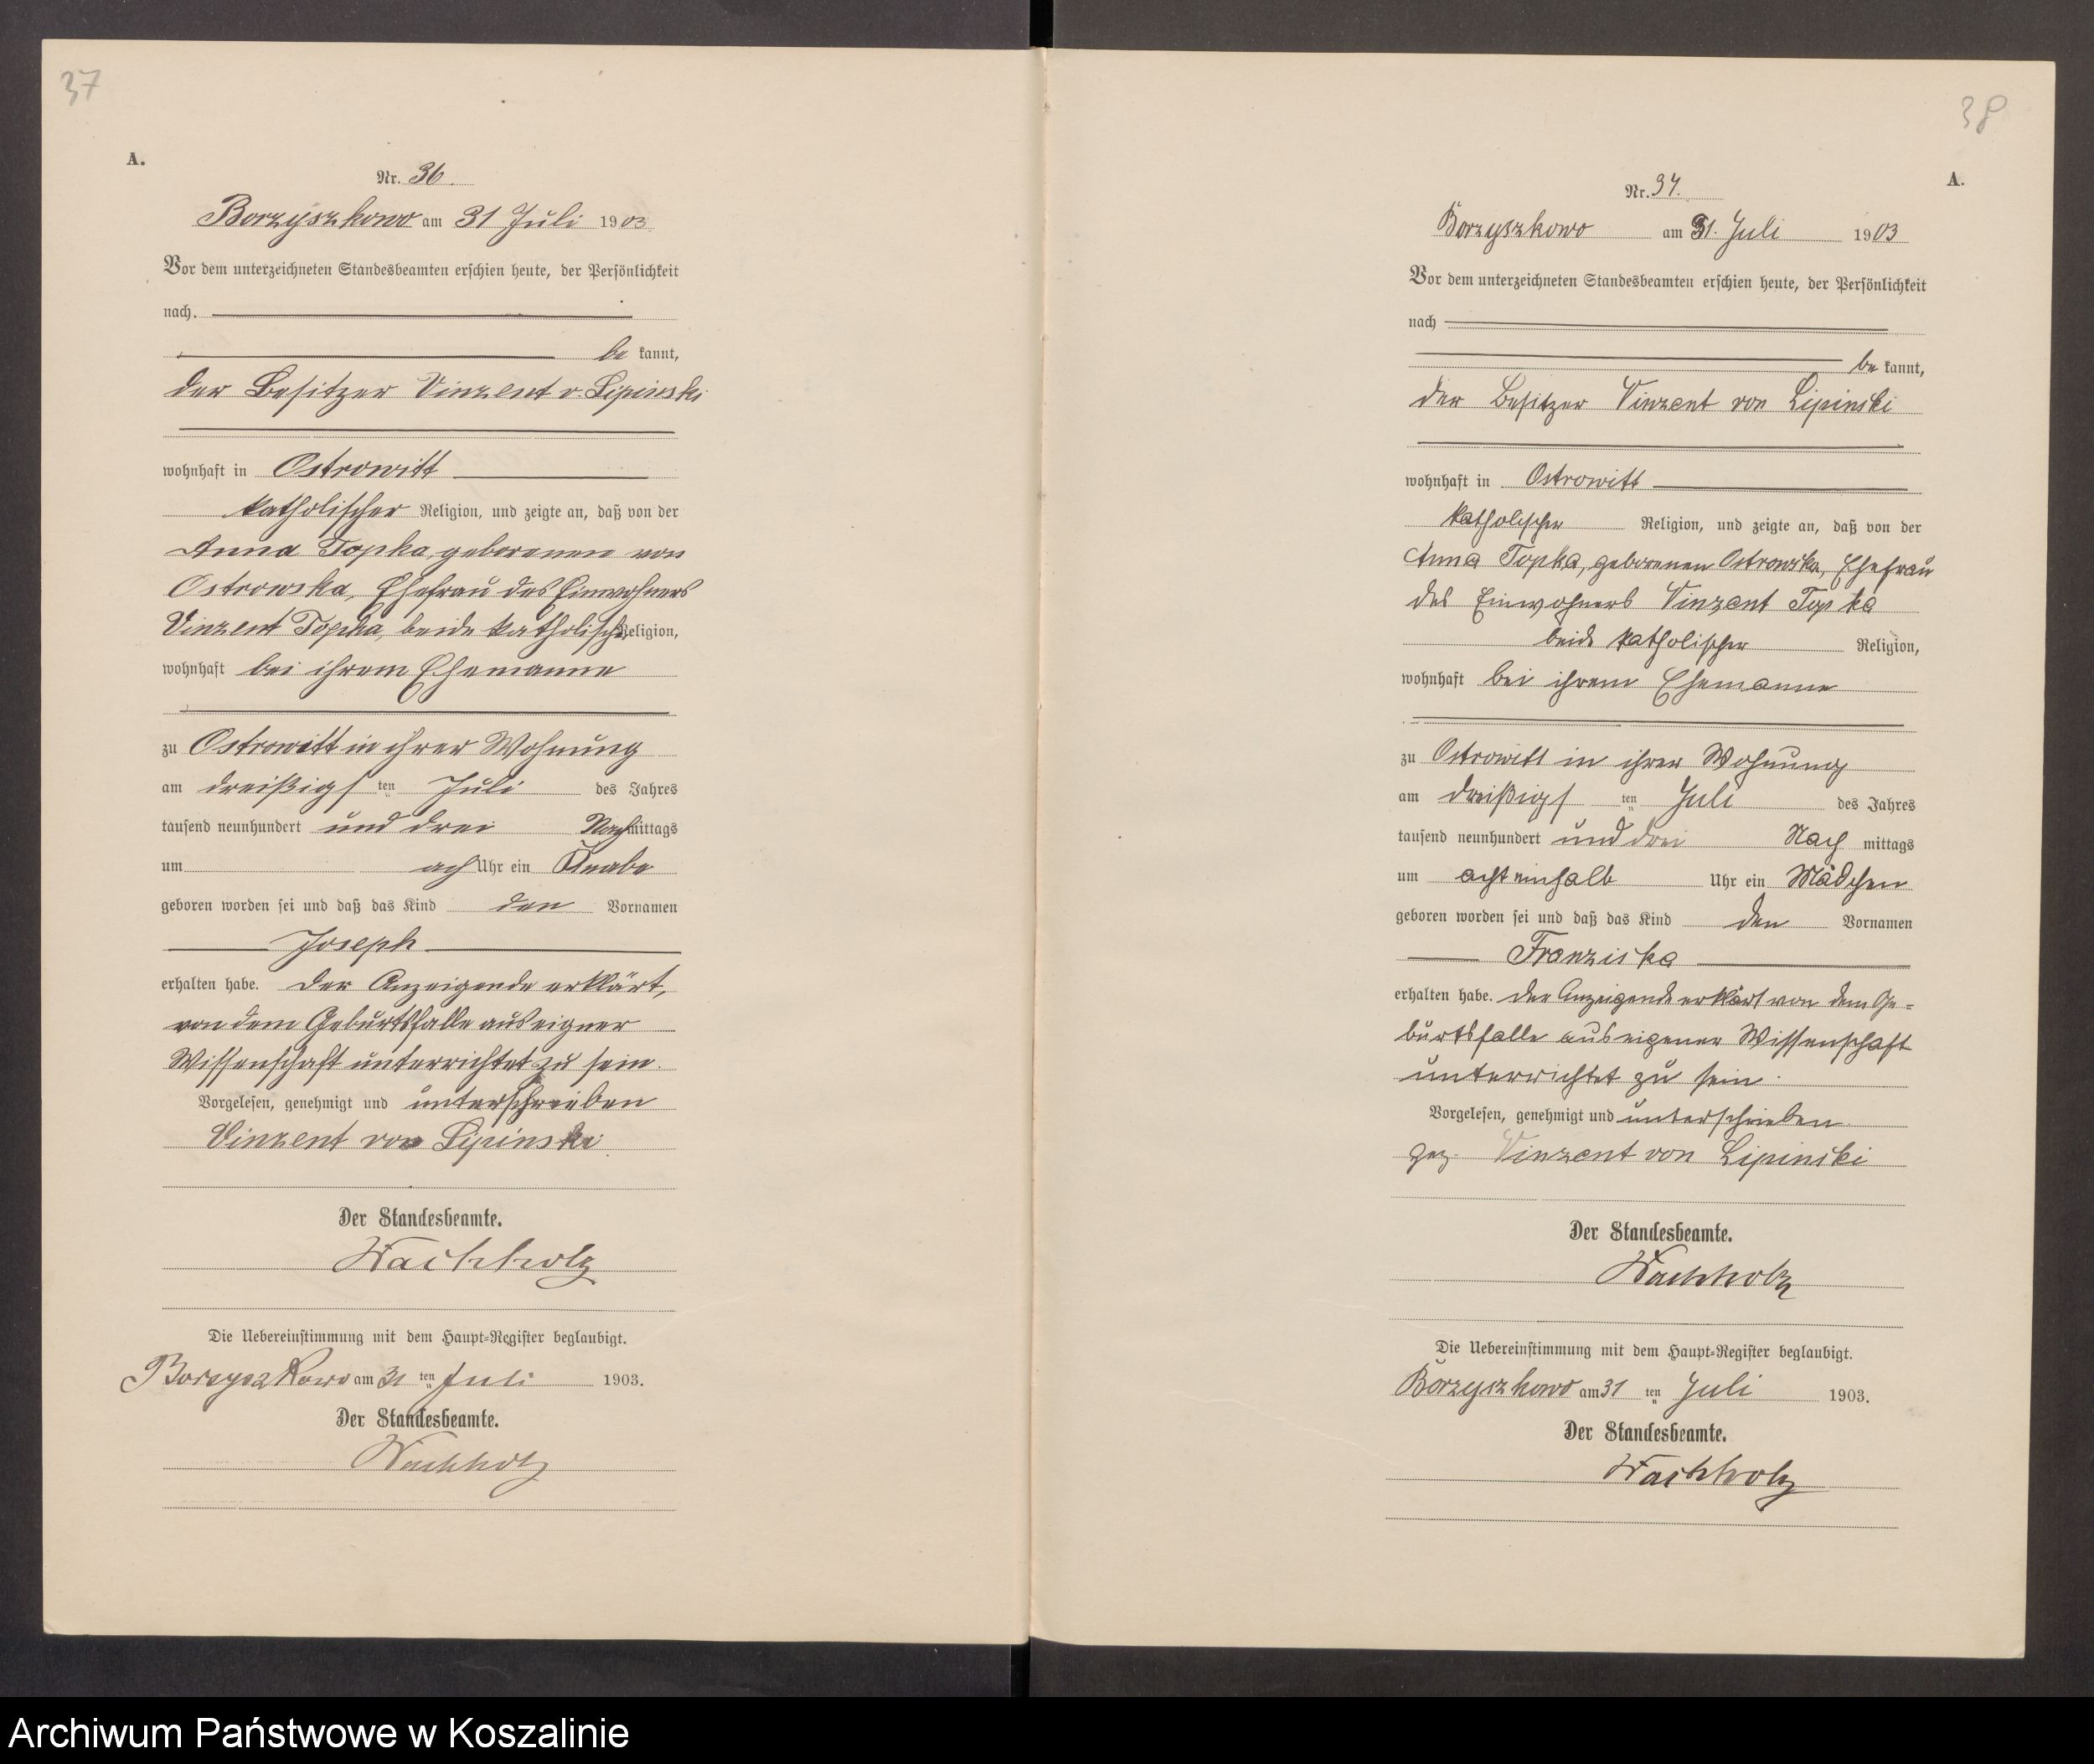 37
A.
Nr. 36.
Borzyszkowo am 31 Juli 1903
Vor dem unterzeichneten Standesbeamten erschien heute, der Persönlichkeit
nach
be kannt,
der Besitzer Vinzent v. Lipinski
wohnhaft in Ostrowitt
katholischer Religion, und zeigte an, daß von der
Anna Topka, geborenen von
Ostrowska, Ehefrau des Einwohners
Vinzent Topka, beide katholischer Religion,
wohnhaft bei ihrem Ehemanne
zu Ostrowitt in ihrer Wohnung
am dreißigsten Juli des Jahres
tausend neunhundert und drei Nachmittags
um ach Uhr ein Knabe
geboren worden sei und daß das Kind den Vornamen
Joseph
erhalten habe. Der Anzeigende erklärt,
von dem Geburtsfalle aus eigner
Wissenschaft unterrichtet zu sein.
Vorgelesen, genehmigt und unterschrieben
Vinzent von Lipinski
Der Standesbeamte.
Wachholz
Die Uebereinstimmung mit dem Haupt-Register beglaubigt.
Borzyszkowo am 31 ten Juli 1903.
Der Standesbeamte.
Wachholz
38
A.
Nr. 37.
Borzyszkowo am 31. Juli 1903
Vor dem unterzeichneten Standesbeamten erschien heute, der Persönlichkeit
nach
be kannt,
der Besitzer Vinzent von Lipinski
wohnhaft in Ostrowitt
katholischer Religion, und zeigte an, daß von der
Anna Topka, geborenen Ostrowska, Ehefrau
des Einwohners Vinzent Topka
beide katholischer Religion,
wohnhaft bei ihrem Ehemanne
zu Ostrowitt in ihrer Wohnung
am dreißigsten Juli des Jahres
tausend neunhundert und drei Nach mittags
um acht einhalb Uhr ein Mädchen
geboren worden sei und daß das Kind den Vornamen
Franziska
erhalten habe. Der Anzeigende erklärt von dem Ge-
burtsfalle aus eigener Wissenschaft
unterrichtet zu sein.
Vorgelesen, genehmigt und unterschrieben.
gez. Vinzent von Lipinski
Der Standesbeamte.
Wachholz
Die Uebereinstimmung mit dem Haupt-Register beglaubigt.
Borzyszkowo am 31 ten Juli 1903.
Der Standesbeamte.
Wachholz
Archiwum Państwowe w Koszalinie